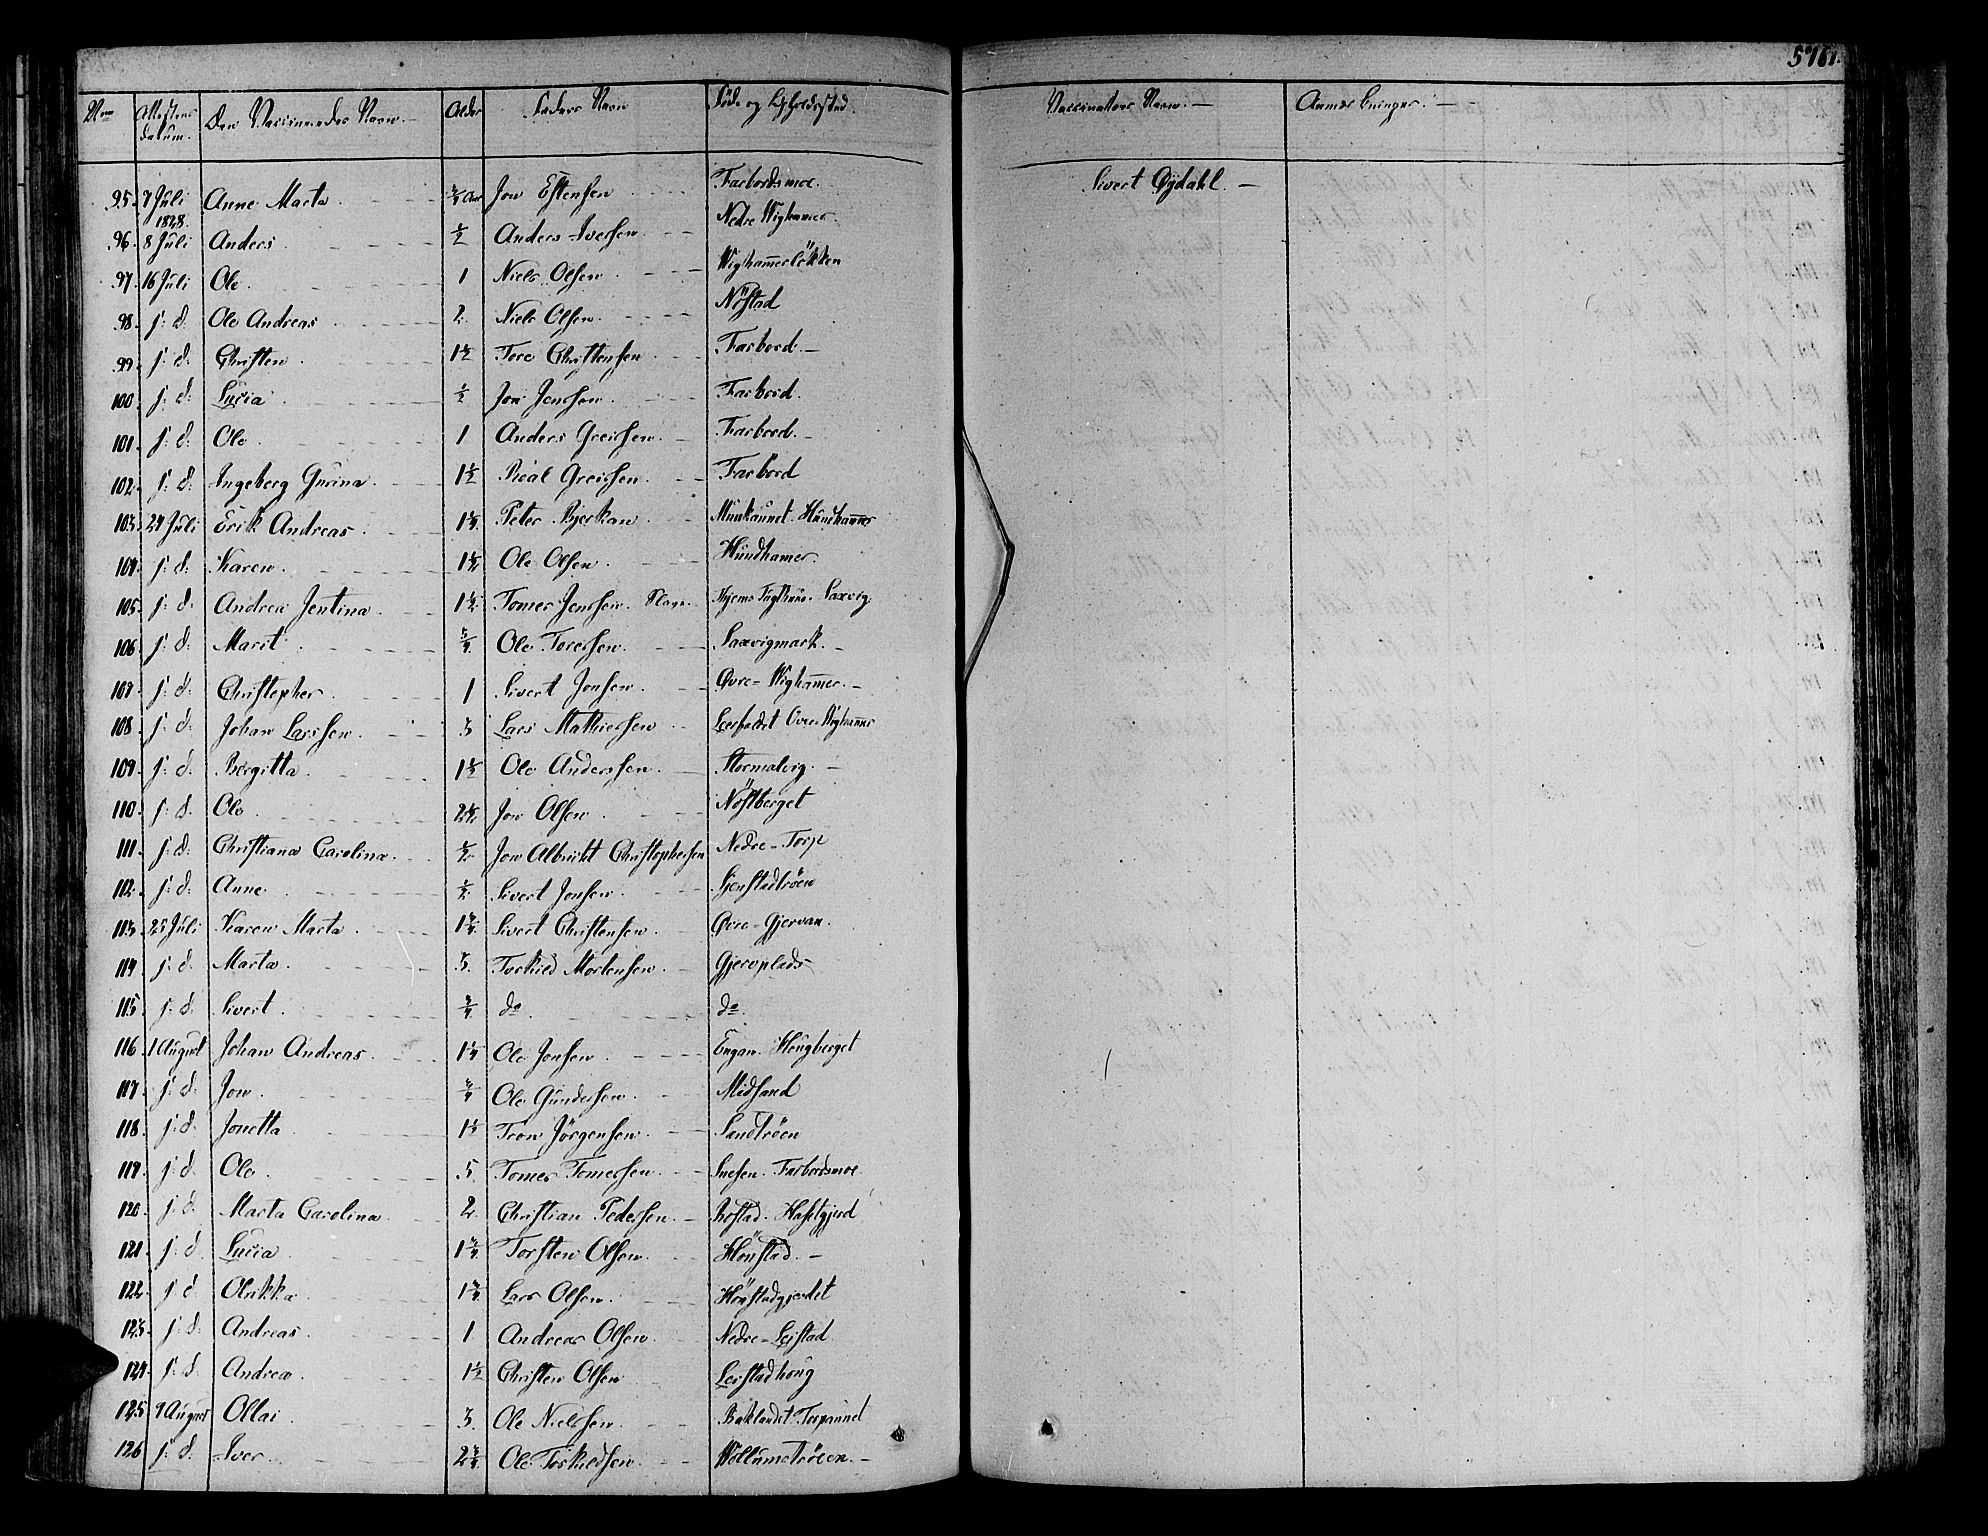 576.
Nom Attestens datum. Den Vaccineredes Navn. Alder Faders Navn Føde og Opholdssted. Vaccinateurs Navn. Anmærkninger.
95. 7 Juli 1828. Anne Marta Jon Estensen Farbordsmoe. Sivert Øydahl.
96. 8 Juli Anders. 1/2 Anders Iversen. Nedre Wighamer.
97. 16 Juli Ole. 1 Niels Olsen. Wighamerløkken
98. j: d: Ole Andreas 2. Niels Olsen. Nøstad
99. j: d: Christen 1 1/2 Tore Christensen Farbord.
100. j: d: Lucia 1/2 Jon Jonsen. Farbord.
101. j: d: Ole. 1 Anders Greisen. Farbord.
102. j: d: Ingeberg Gurina. 1 1/2 Roal Greisen. Farbord
103. 24 Juli Erik Andreas. 1 1/4 Peter Bjerkan Munkaunet. Hundhamer
104. j: d: Karen. 1 1/2 Ole Olsen. Hundhamer.
105. j: d: Andrea Jentina 1 1/2 Tomes Jenssen. Saxvig.
106. j: d: Marit. 3/4 Ole Toressen. Saxvigmark.
107. j: d: Christopher. 1 Sivert Jonsen. Øvre-Wighamer.
108. j: d: Johan Larssen. 3 Lars Mathiessen Øvre-Wighamer
109. j: d: Bergitta. 1 1/2 Ole Anderssen. Stormalvig.
110. j: d: Ole. 2 1/2 Jon Olsen. Nøstberget
111. j: d: Christiana Carolina. 1/2 Jon Albricht Christophersen Nedre-Torp
112. j: d: Anne. 1/2 Sivert Jonsen. Sjenstadtrøen
113. 25 Juli Karen Marta 1 3/4 Sivert Christensen. Øvre-Gjervan.
114. j: d: Marta. 3. Torkild Mortensen. Gjervplads
115. j: d: Sivert. 3/4 do do.
116. 1 August Johan Andreas. 1 1/4 Ole Jonsen. Engan. Hougberget
117. j: d: Jon. 3/4 Ole Gundersen. Midsand
118. j: d: Jonetta 1 1/2 Tron Jörgensen. Sandtrøen
119. j: d. Ole. 5. Tomes Tomessen. Snesen. Farbordsmoe
120. j: d: Marta Carolina. 2 Christian Pedersen. Rostad. Haselgjerd
121. j: d. Lucia 1 3/4 Torsten Olsen. Hønstad.
122. j: d. Olrikka 1 3/4 Lars Olsen. Hønstadgjerdet
123. j: d: Andreas. 1 Andreas Olsen Nedre-Leistad
124. j: d. Andrea. 1 1/2 Christen Olsen Leistadhoug
125. 9 August Ollai 3. Ole Nielssen. Baklandet Torpaunet
126 j: d: Iver. 2 3/4 Ole Torkildsen. Wollumstrøen.